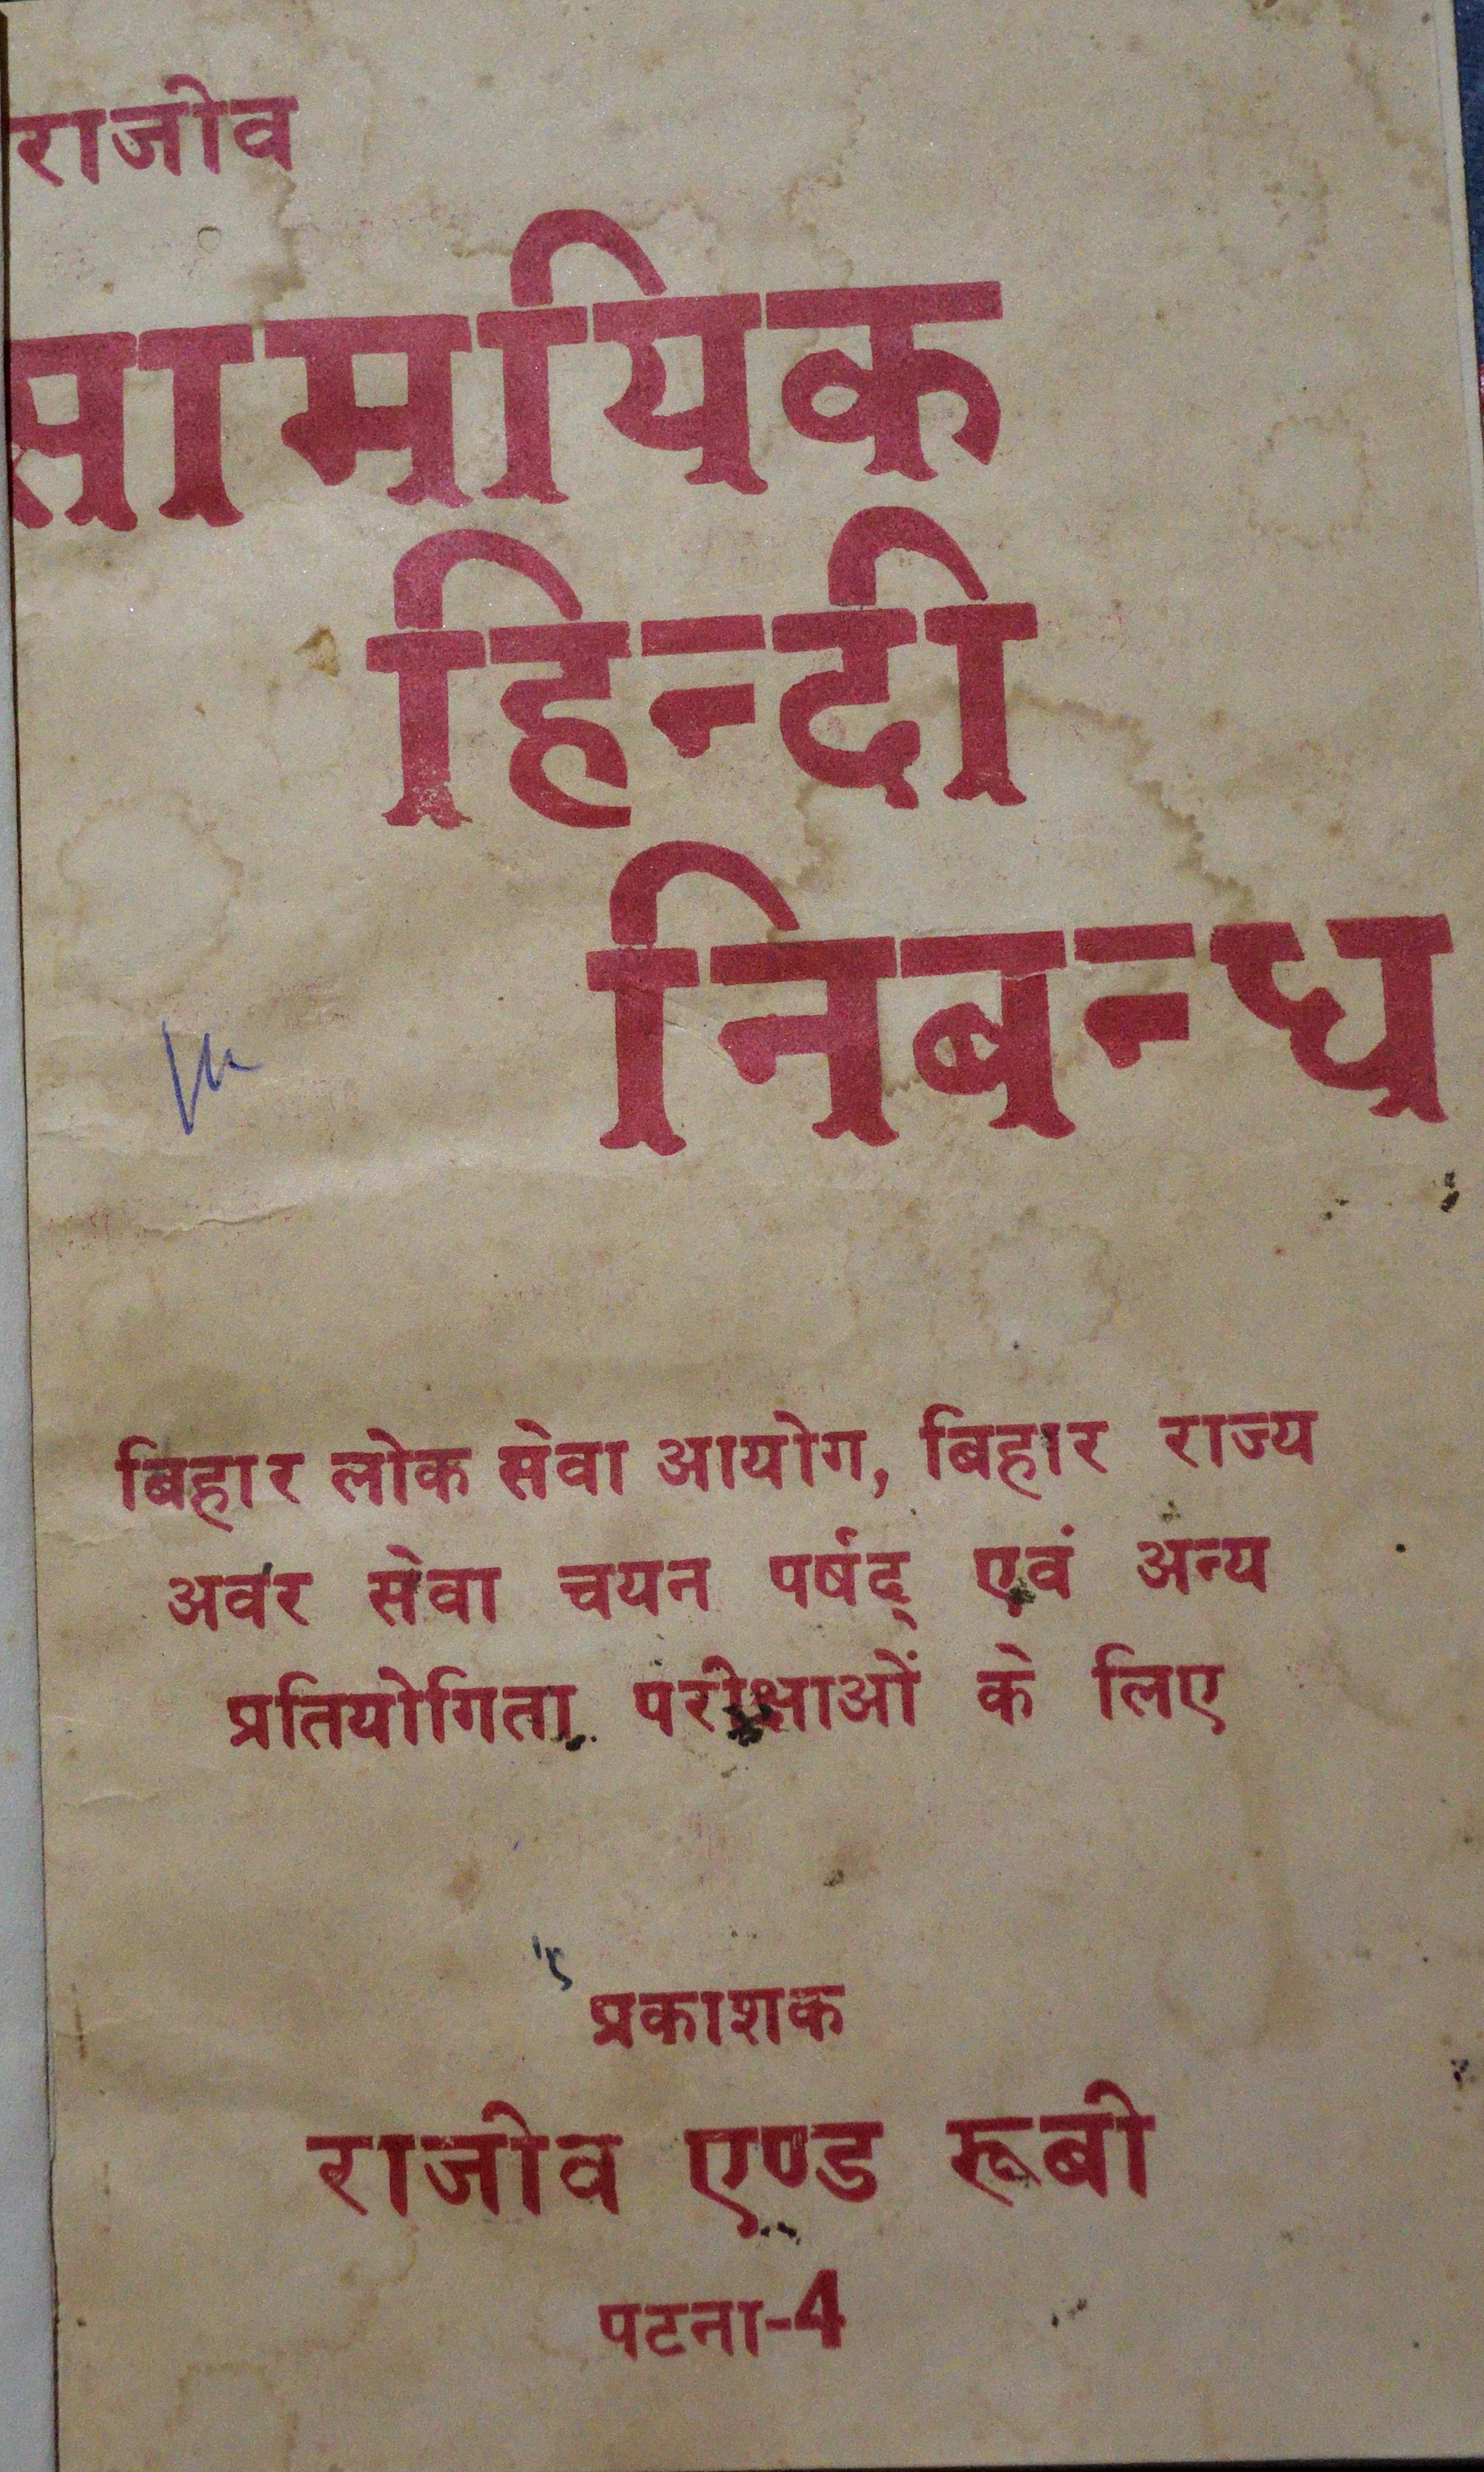 राजीव
सामयिक
हिन्दी
निबन्ध
बिहार लोक सेवा आयोग, बिहार राज्य
अवर सेवा चयन पर्षद् एवं अन्य
प्रतियोगिता परीक्षाओं के लिए
प्रकाशक
राजीव एण्ड रूबी
पटना-4